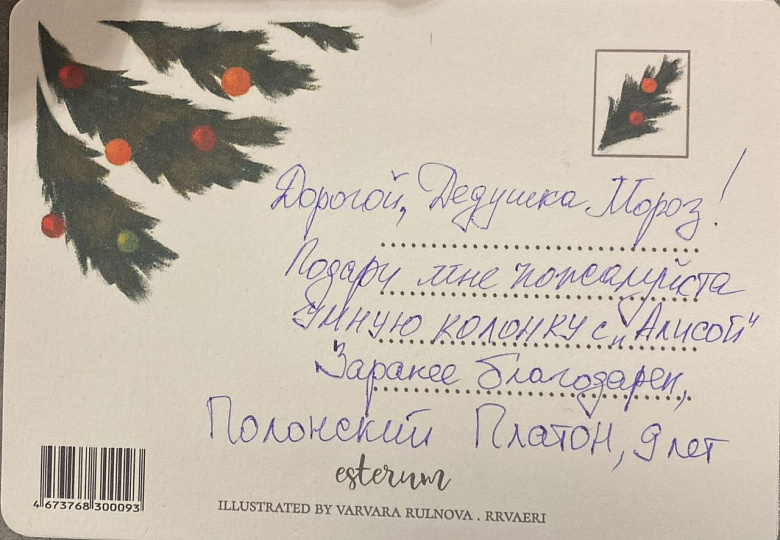 Дорогой, Дедушка Мороз!
Подари мне пожалуйста
умную колонку с „Алисой"
Заранее благодарен,
Полонский Платон, 9 лет
esterum
4 673768 300093
ILLUSTRATED BY VARVARA RULNOVA . RRVAERI